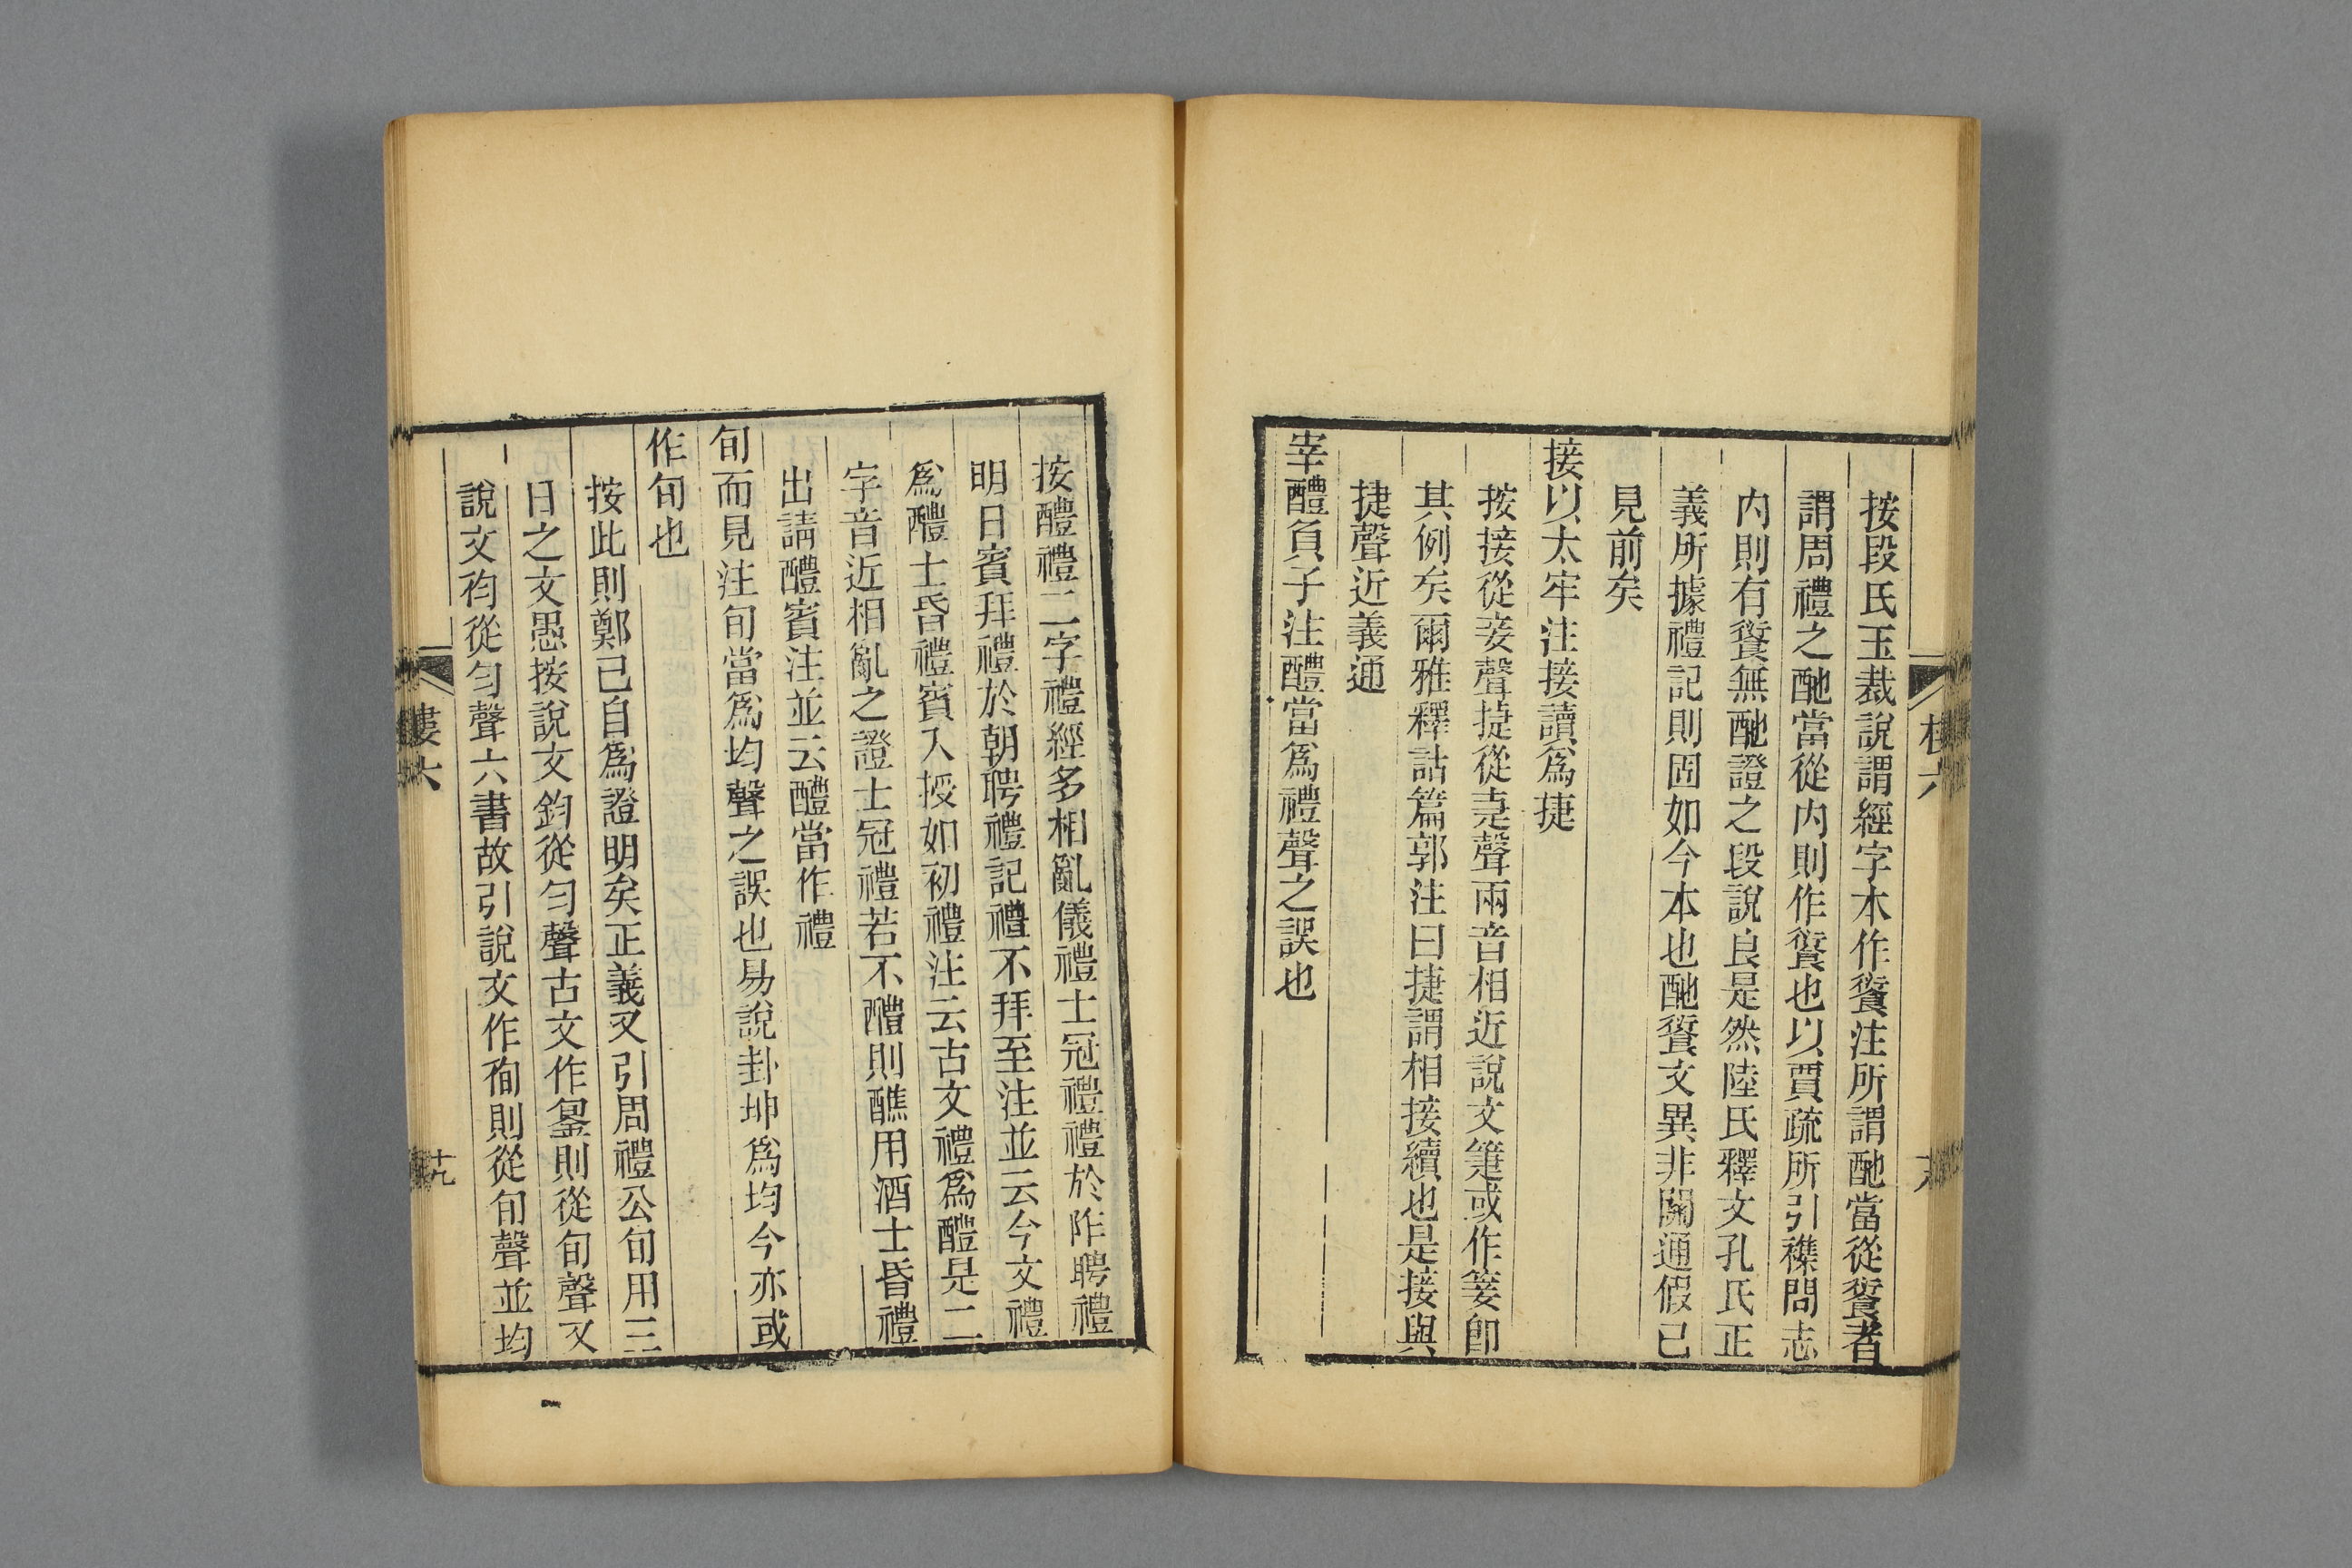 按段氏玉裁說謂經字木作餈注所謂酏當從餈者
謂周禮之酏當從内則作餈也以賈疏所引襍問志
内則有餈無酏證之段說良是然陸氏釋文孔氏正
義所據禮記則固如今本也酏餈文異非關通假已
見前矣
接以太牢注接讀爲捷
按接從妾聲捷從疌聲兩音相近說文箑或作篓卽
其例矣爾雅釋詁篇郭注曰捷謂相接續也是接與
捷聲近義通
宰醴負子注醴當爲禮聲之誤也
按醴禮二字禮經多相亂儀禮士冠禮禮於阼聘禮
明日賓拜禮於朝聘禮記禮不拜至注並云今文禮
爲醴士昏禮賓入授如初禮注云古文禮爲醴是二
字音近相亂之證士冠禮若不醴則醮用酒士昏禮
出請醴賓注並云醴當作禮
旬而見注旬當爲均聲之誤也易說卦坤爲均今亦或
作旬也
按此則鄭已自爲證明矣正義又引周禮公旬用三
日之文愚按說文鈞從匀聲古文作銞則從旬聲又
說文袀從匀聲六書故引說文作袧則從旬聲並均
樓六
十九